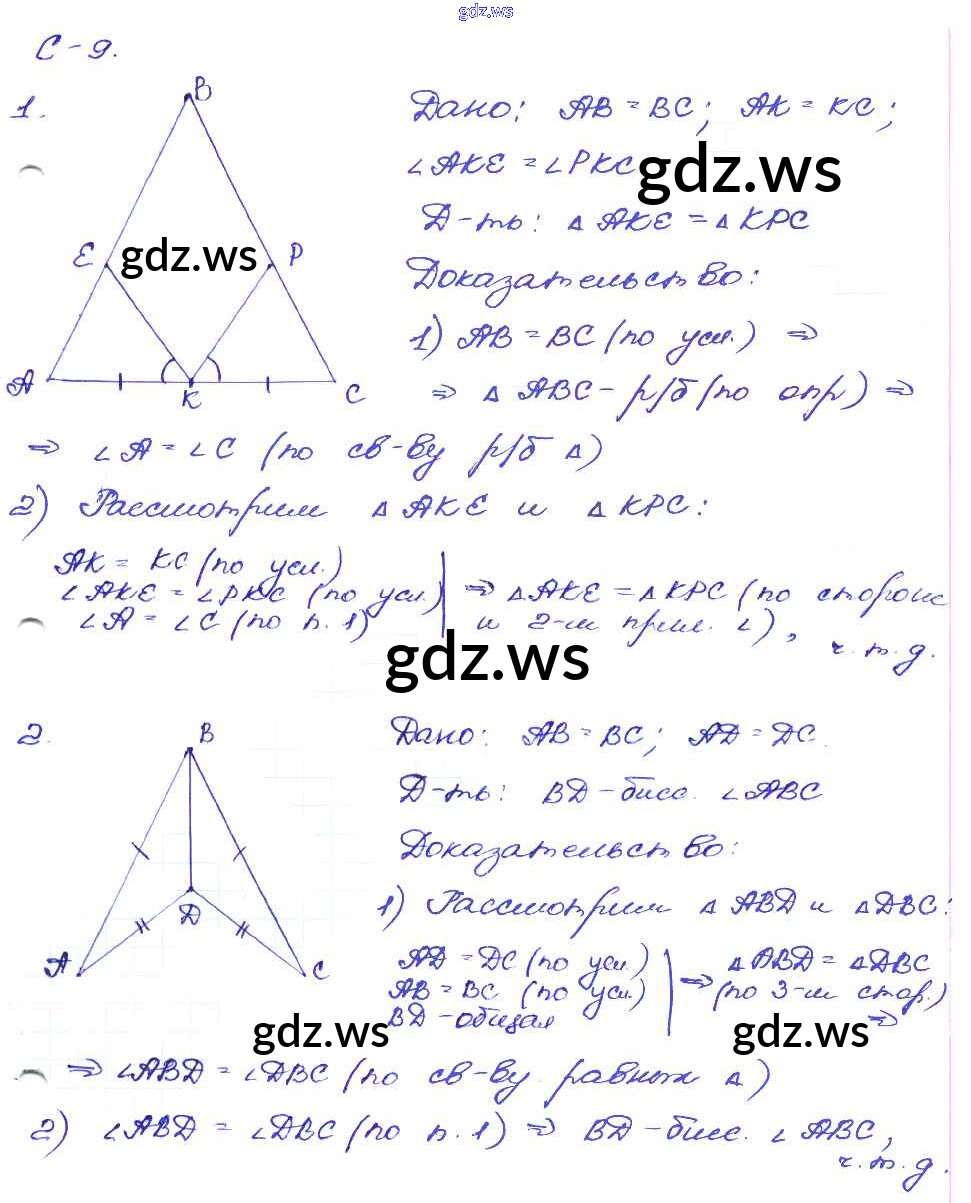 gdz.ws
С-9.
1.
B
E
P
A
K
C
Дано: AB = BC; AK = KC;
∠AKE = ∠PKC
gdz.ws
Д-ть: △AKE = △KPC
gdz.ws
Доказательство:
1) AB = BC (по усл.) ⇒
⇒ △ABC - р/б (по опр) ⇒
⇒ ∠A = ∠C (по св-ву р/б △)
2) Рассмотрим △AKE и △KPC:
AK = KC (по усл.)
∠AKE = ∠PKC (по усл.) ⇒ △AKE = △KPC (по стороне
∠A = ∠C (по п.1) и 2-м прил. ∠),
ч.т.д.
gdz.ws
2.
B
D
A
C
Дано: AB = BC; AD = DC.
Д-ть: BD - бисс. ∠ABC
Доказательство:
1) Рассмотрим △ABD и △DBC:
AD = DC (по усл.) ⇒ △ABD = △DBC
AB = BC (по усл.) (по 3-м стор.)
BD - общая ⇒
gdz.ws gdz.ws
⇒ ∠ABD = ∠DBC (по св-ву равных △)
2) ∠ABD = ∠DBC (по п.1) ⇒ BD - бисс. ∠ABC,
ч.т.д.